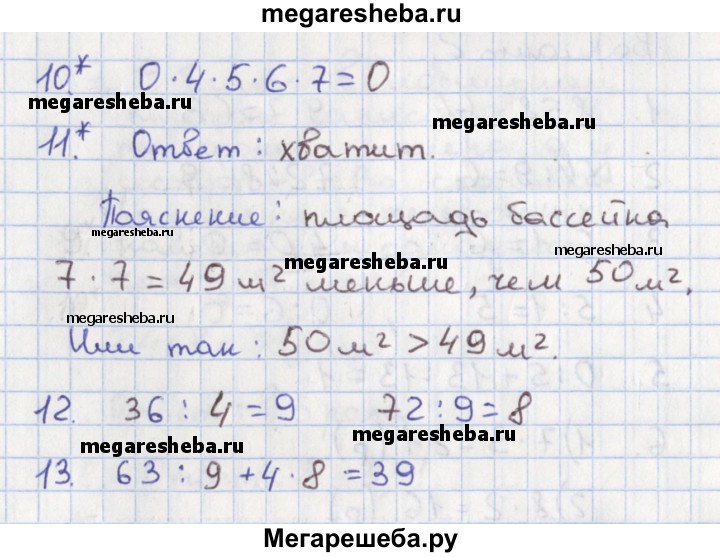 megaresheba.ru
10.* 0·4·5·6·7=0
megaresheba.ru
megaresheba.ru
11.* Ответ: хватит.
Пояснение: площадь бассейна
megaresheba.ru
megaresheba.ru
megaresheba.ru
7·7=49 м² меньше, чем 50 м².
megaresheba.ru
Или так: 50 м² > 49 м².
12. 36:4=9 72:9=8
megaresheba.ru
megaresheba.ru
13. 63:9+4·8=39
Мегарешеба.ру